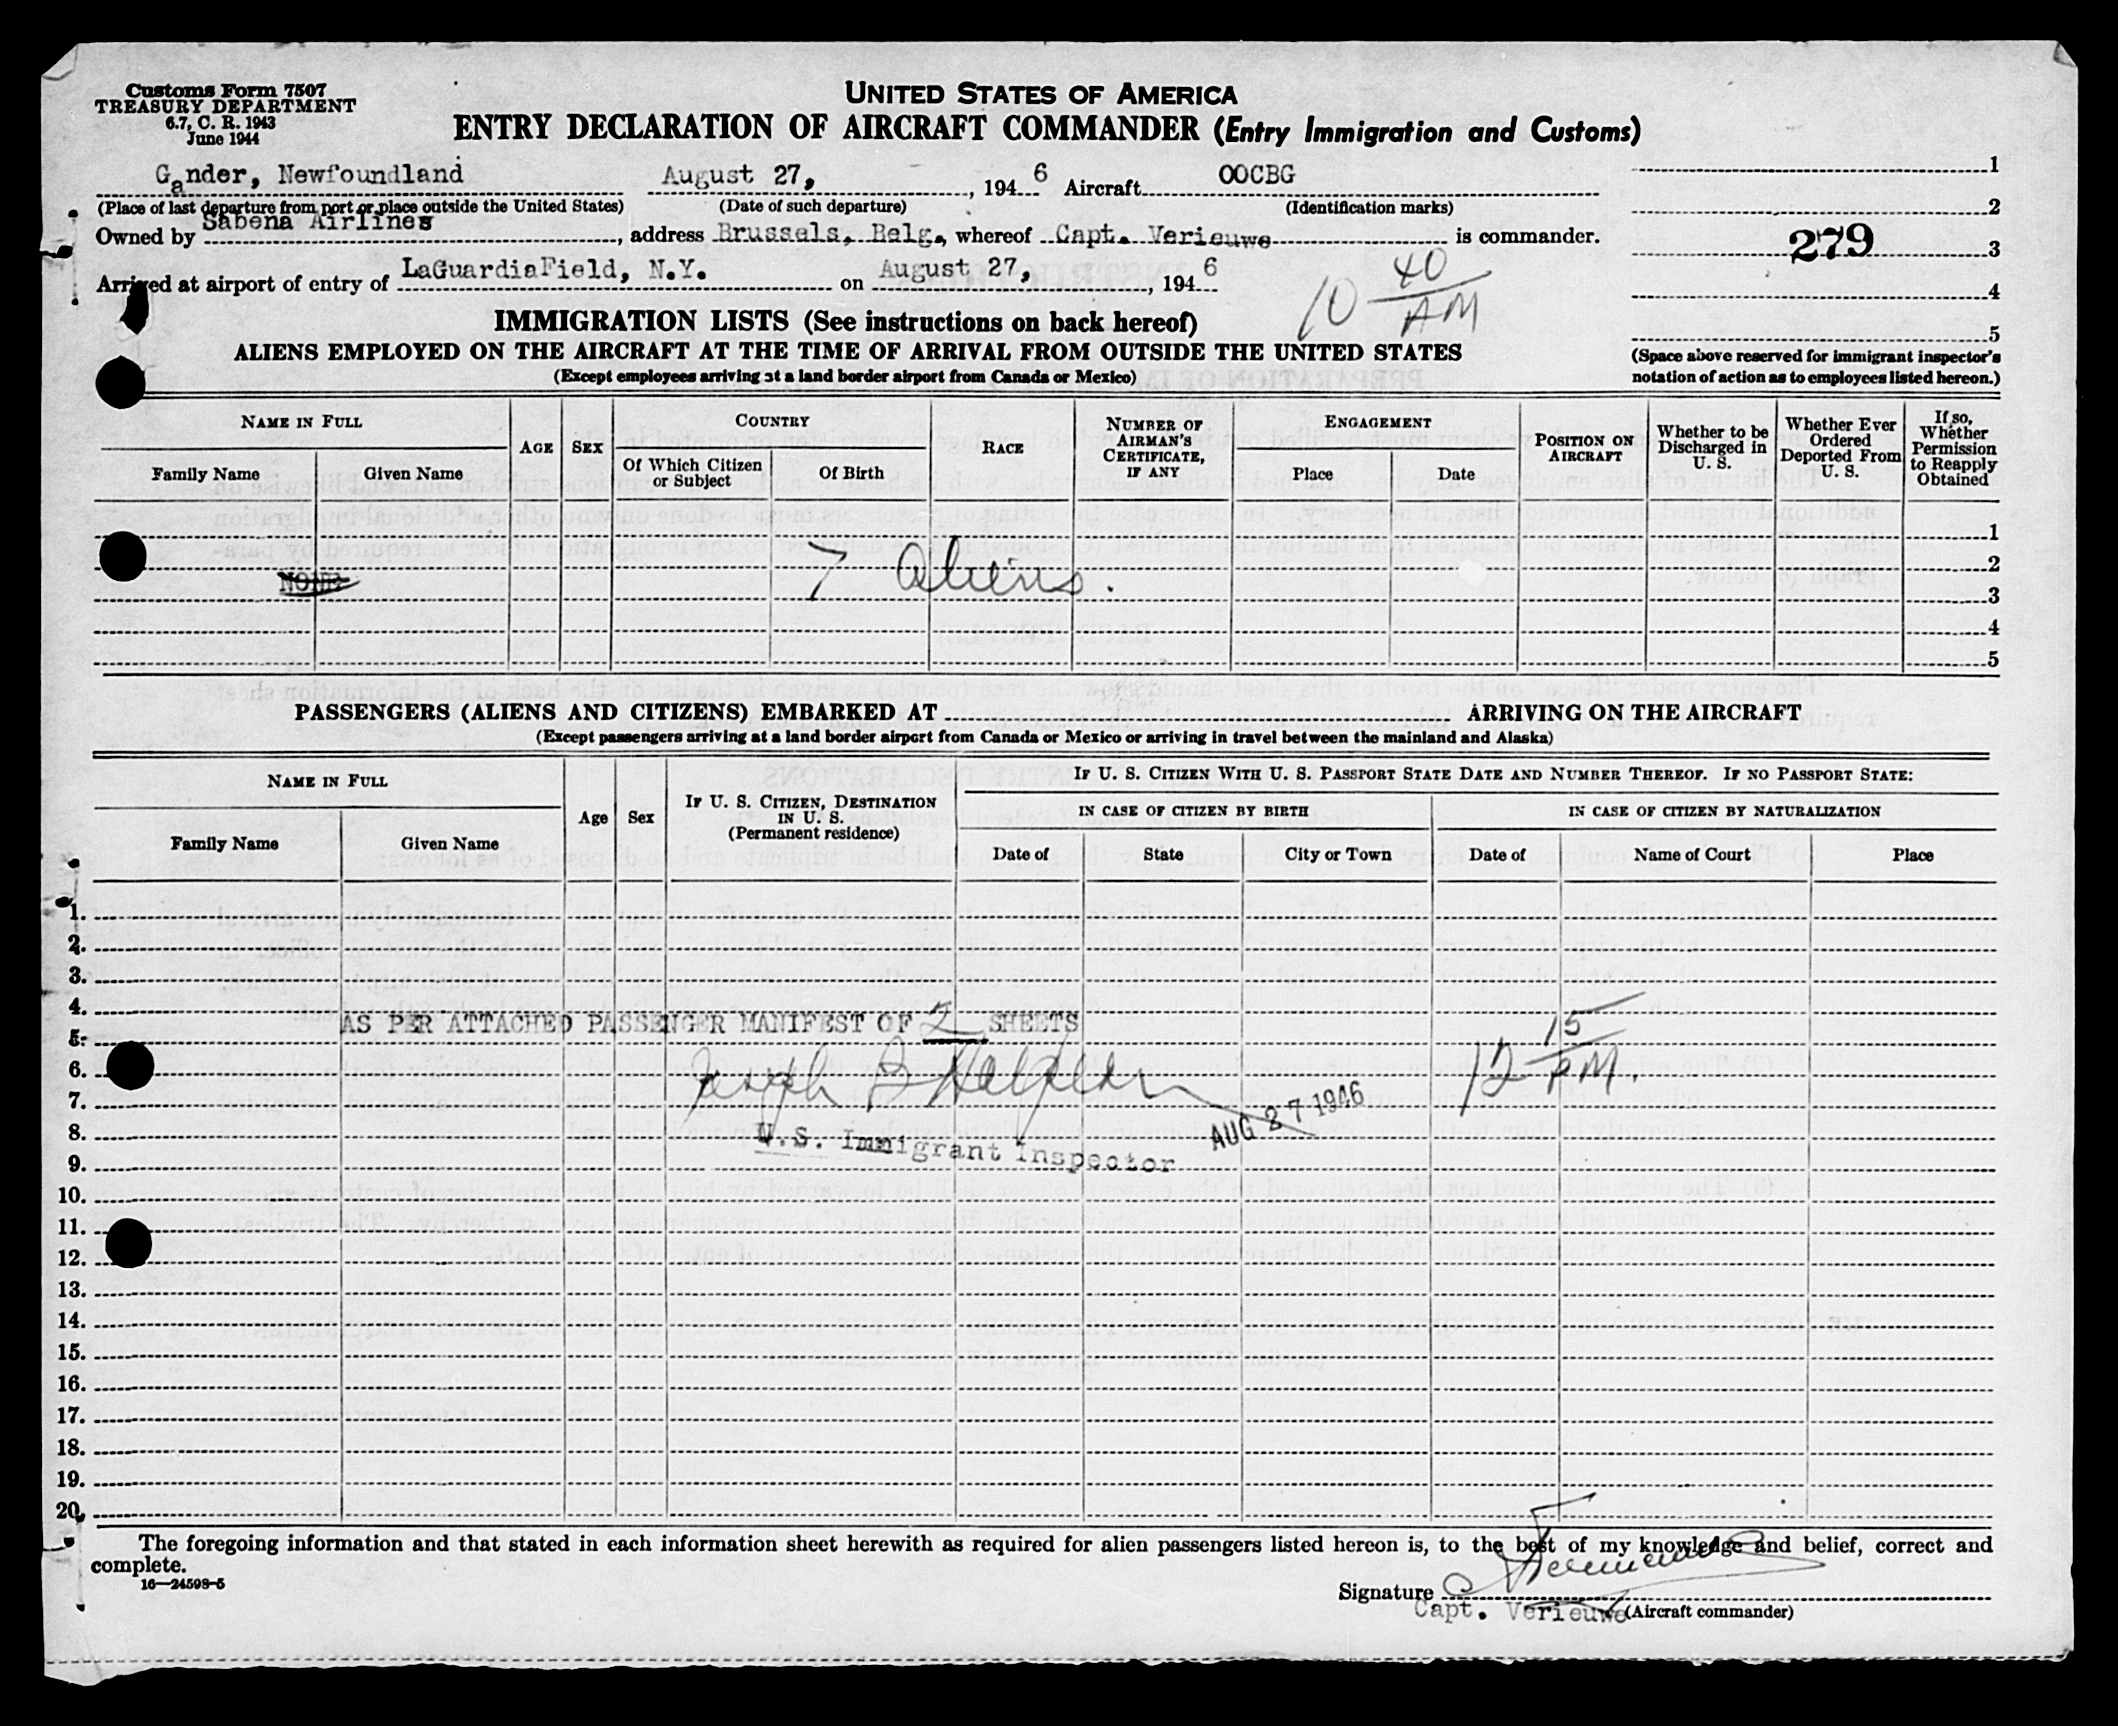 Customs Form 7507
TREASURY DEPARTMENT
6.7, C. R. 1943
June 1944
UNITED STATES OF AMERICA
ENTRY DECLARATION OF AIRCRAFT COMMANDER (Entry Immigration and Customs)
Gander, Newfoundland August 27, , 194 6 Aircraft OOCBG
(Place of last departure from port or place outside the United States) (Date of such departure) (Identification marks)
Owned by Sabena Airlines, address Brussels, Belg., whereof Capt. Verieuwe is commander.
Arrived at airport of entry of LaGuardiaField, N.Y. on August 27, , 194 6
10 40 AM
1
2
279 3
4
5
(Space above reserved for immigrant inspector's
notation of action as to employees listed hereon.)
IMMIGRATION LISTS (See instructions on back hereof)
ALIENS EMPLOYED ON THE AIRCRAFT AT THE TIME OF ARRIVAL FROM OUTSIDE THE UNITED STATES
(Except employees arriving at a land border airport from Canada or Mexico)
NAME IN FULL
Family Name Given Name
AGE SEX
COUNTRY
Of Which Citizen or Subject Of Birth
RACE
NUMBER OF AIRMAN'S CERTIFICATE, IF ANY
ENGAGEMENT
Place Date
POSITION ON AIRCRAFT
Whether to be Discharged in U. S.
Whether Ever Ordered Deported From U. S.
If so, Whether Permission to Reapply Obtained
1
2
NONE 7 Aliens.
3
4
5
PASSENGERS (ALIENS AND CITIZENS) EMBARKED AT ARRIVING ON THE AIRCRAFT
(Except passengers arriving at a land border airport from Canada or Mexico or arriving in travel between the mainland and Alaska)
NAME IN FULL
Family Name Given Name
Age Sex
IF U. S. CITIZEN, DESTINATION IN U. S.
(Permanent residence)
IF U. S. CITIZEN WITH U. S. PASSPORT STATE DATE AND NUMBER THEREOF. IF NO PASSPORT STATE:
IN CASE OF CITIZEN BY BIRTH IN CASE OF CITIZEN BY NATURALIZATION
Date of State City or Town Date of Name of Court Place
1.
2.
3.
4.
AS PER ATTACHED PASSENGER MANIFEST OF 2 SHEETS
5.
6.
Joseph B Halpern 12 15 PM.
7.
AUG 27 1946
8.
U.S. Immigrant Inspector
9.
10.
11.
12.
13.
14.
15.
16.
17.
18.
19.
20.
The foregoing information and that stated in each information sheet herewith as required for alien passengers listed hereon is, to the best of my knowledge and belief, correct and
complete.
16—24598-5
Signature
Capt. Verieuwe (Aircraft commander)